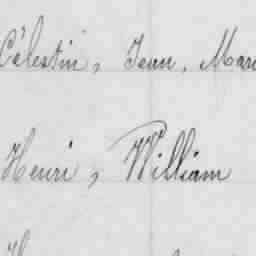 Célestin, Jean, Mari
Henri, William